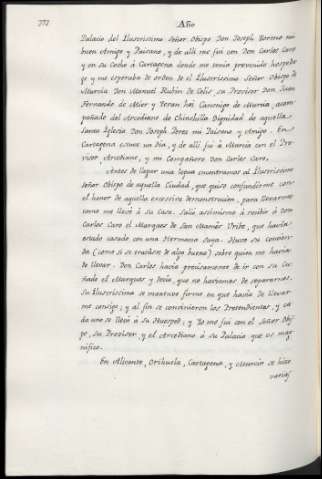 772
Año
Palacio del Ilustrisimo Señor Obispo Don Joseph Tormo mi
buen Amigo y Paisano, y de allí me fui con Don Carlos Caro
y en su Coche à Cartagena donde me tenía prevenido hospeda
ge y me esperaba de orden de el Ilustrisimo Señor Obispo de
Murcia Don Manuel Rubin de Celis, su Provisor Don Juan
Fernando de Mier y Teran hoi Canonigo de Murcia, acom
pañado del Arcediano de Chinchilla Dignidad de aquella
Santa Iglesia Don Joseph Perez mi Paisano y Amigo. En
Cartagena estube un Dia, y de allí fui à Murcia con el Pro
visor, Arcediano, y mi Compañero Don Carlos Caro.
Antes de llegar una legua encontramos al Ilustrisimo
Señor Obispo de aquella Ciudad, que quiso confundirme con
el honor de aquella excesiva demonstracion, para llevarme
como me llevó à su Casa. Salió asimismo à recibir à Don
Carlos Caro el Marques de San Mamés Uribe, que havia
estado casado con una Hermana suya. Huvo su contien-
da (como si se tratase de algo bueno) sobre quien me havia
de llevar. Don Carlos havia precisamente de ir con su Cu
ñado el Marques y decia, que no haviamos de separarnos.
Su Ilustrisima se mantuvo firme en que havia de llevar
me consigo; y al fin se convinieron los Pretendientes, y ca
da uno se llevó à su Huesped; y Yo me fui con el Señor Obis
po, su Provisor, y el Arcediano à su Palacio que es mag
nifico.
En Alicante, Orihuela, Cartagena, y Murcia se hizo
varias